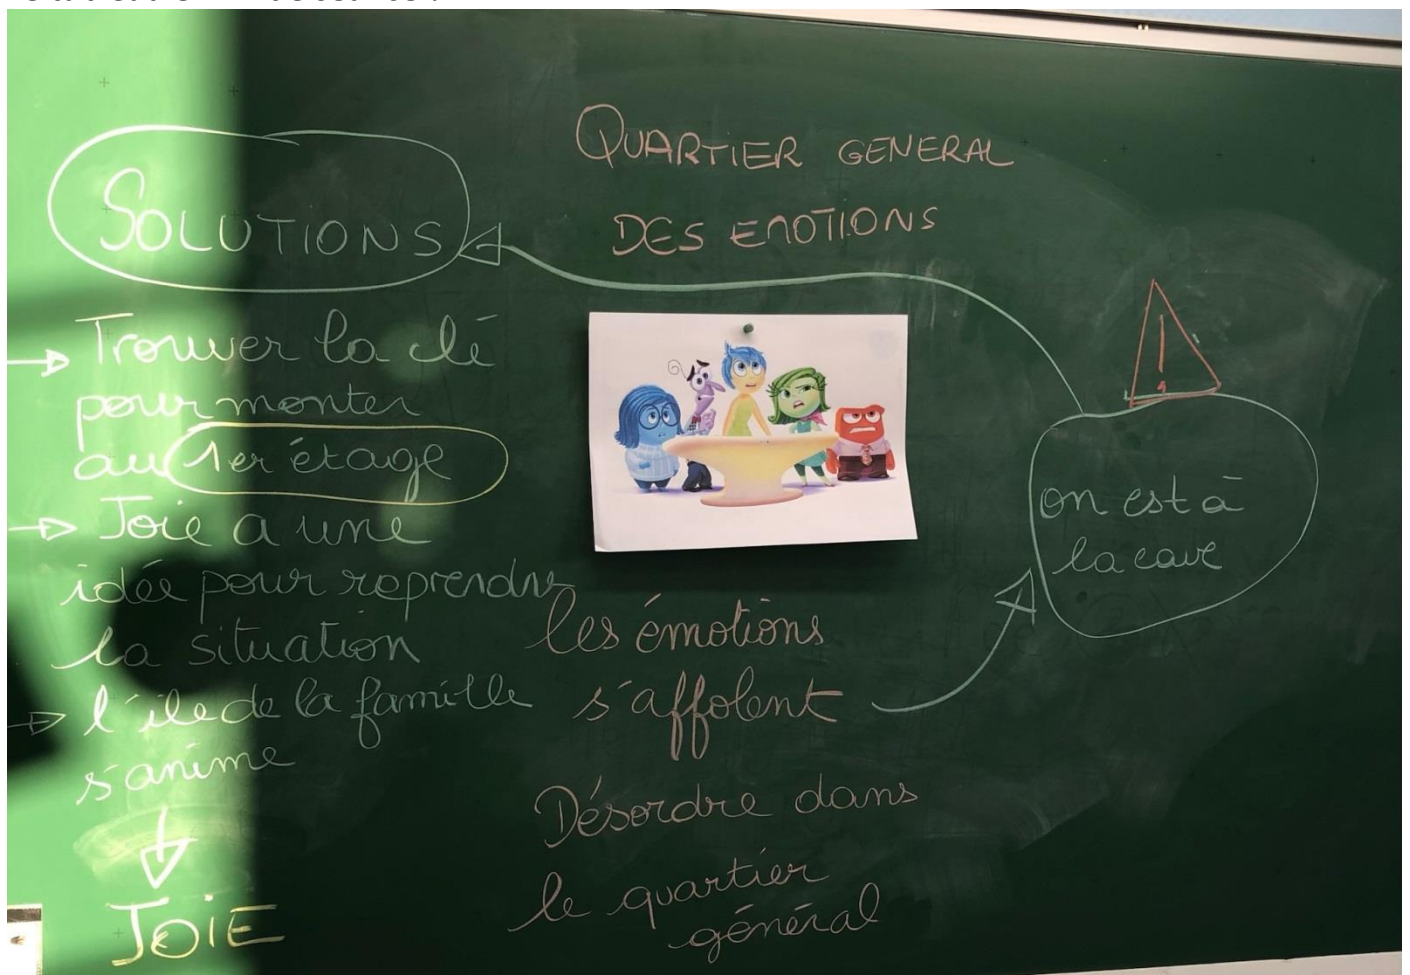 SOLUTIONS
→ Trouver la clé
pour monter
au 1er étage
→ Joie a une
idée pour reprendre
la situation
→ l'ile de la famille
s'anime
JOIE
QUARTIER GENERAL
DES EMOTIONS
les émotions
s'affolent
Désordre dans
le quartier
général
!
on est à
la cave